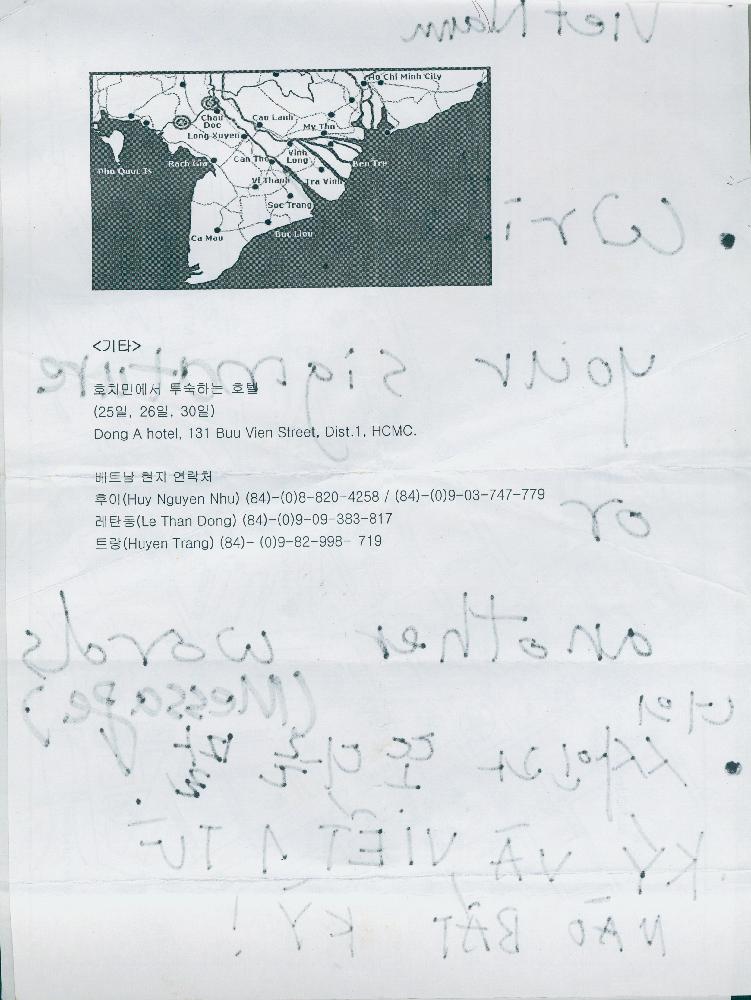 Viet Nam
Ho Chi Minh City
Chau Doc
Cau Lanh
My Tho
Long Xuyen
Vinh Long
Rach Gia
Can Tho
Ben Tre
Phu Quoc Is
Vi Thanh
Tra Vinh
Soc Trang
Ca Mau
Wri
<기타>
your signature
호치민에서 투숙하는 호텔
(25일, 26일, 30일)
Dong A hotel, 131 Buu Vien Street, Dist.1, HCMC.
베트남 현지 연락처
후이(Huy Nguyen Nhu) (84)-(0)8-820-4258 / (84)-(0)9-03-747-779
or
레탄동(Le Than Dong) (84)-(0)9-09-383-817
트랑(Huyen Trang) (84)- (0)9-82-998- 719
another words
(Message)
너의
사인과 또다른 말
KÝ VÀ VIẾT 1 TỪ
NÀO BẤT KỲ !